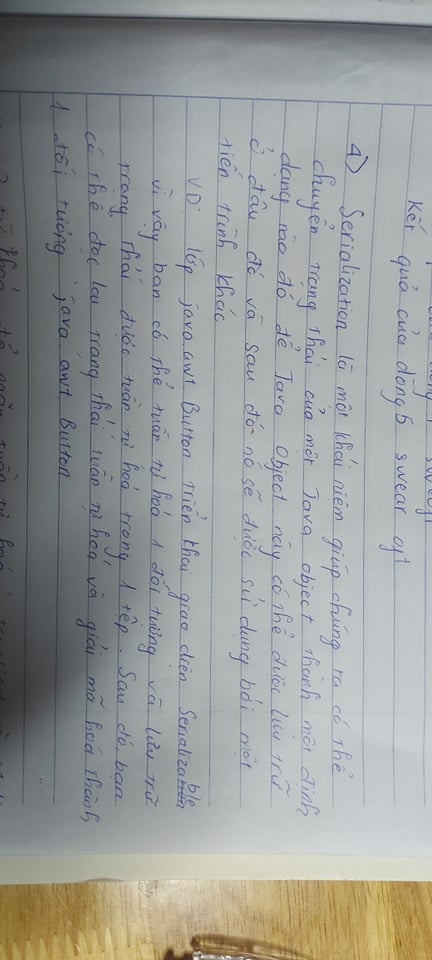 Kết quả của dòng 5 swear oft
4) Serialization là một khái niệm giúp chúng ta có thể
chuyển trạng thái của một Java object thành một định
dạng nào đó để Java Object này có thể được lưu trữ
ở đâu đó và sau đó nó sẽ được sử dụng bởi một
tiến trình khác
VD: lớp java.awt Button triển khai giao diện Serializable
vì vậy bạn có thể tuần tự hoá 1 đối tượng và lưu trữ
trạng thái được tuần tự hoá trong 1 tệp. Sau đó, bạn
có thể đọc lại trạng thái tuần tự hoá và giải mã hoá thành
1 đối tượng java awt. Button